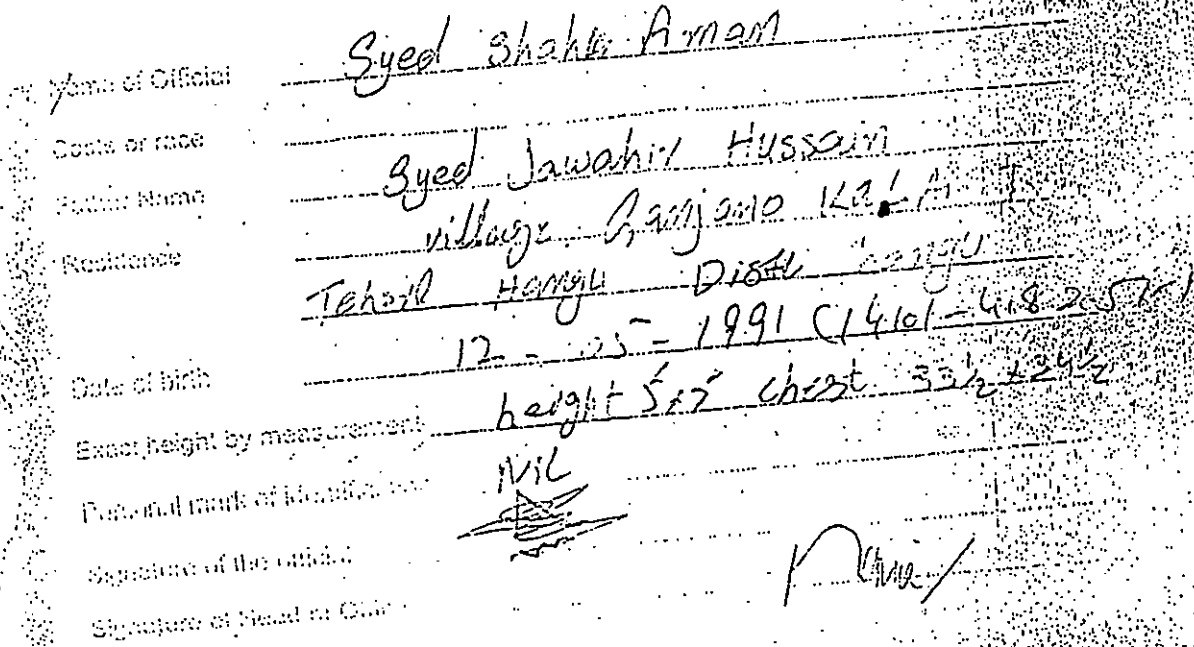 Name of Official Syed Shahn Aman
Caste or race
Father Name Syed Jawahir Hussain
Residence village Ganjano Kala
Tehsil Hangu Distt hangu
Date of birth 12-05-1991
Exact height by measurement height 5'×5" chest 33½×34½
Personal mark of identification Nil
Signature of the official
Signature of Head of